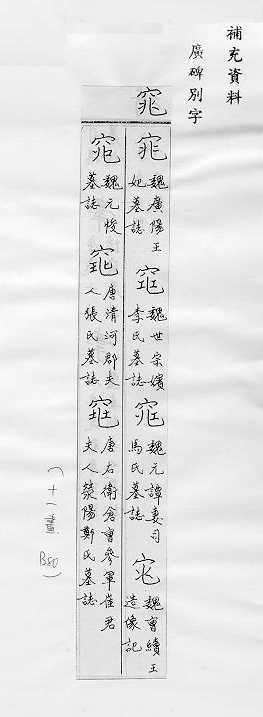 補充資料
廣碑別字
窕
窕 魏廣陽王妃墓誌
魏世宗嬪李氏墓誌
魏元譚妻司馬氏墓誌
魏曹續王造像記
魏元悛墓誌
唐清河郡夫人張氏墓誌
唐右衛倉曹參軍崔君夫人滎陽鄭氏墓誌
(十一畫 B50)